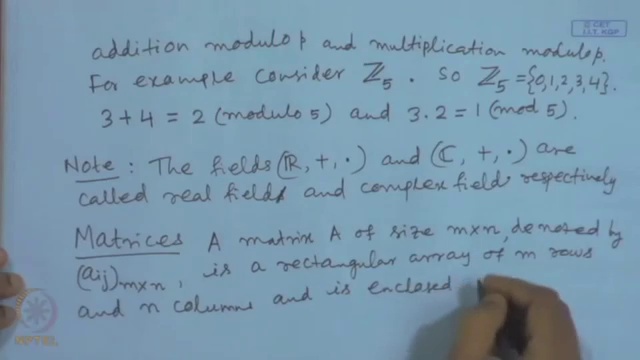 © CET
I.I.T. KGP
addition modulo p and multiplication modulo p.
For example consider ℤ₅. So ℤ₅ = {0,1,2,3,4}.
3+4 = 2 (modulo 5) and 3.2 = 1 (mod 5).
Note: The fields (ℝ, +, ·) and (ℂ, +, ·) are
called real field and complex field respectively
Matrices A matrix A of size m×n, denoted by
(aij)m×n, is a rectangular array of m rows
and n columns and is enclosed
NPTEL